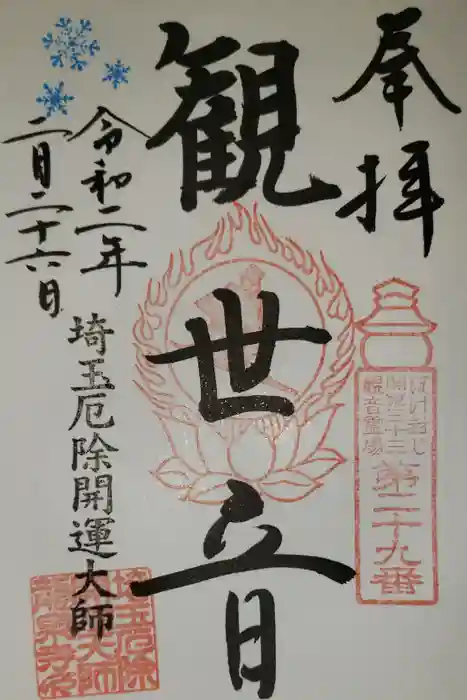 奉拝
ぼけ封じ
関東三十三
観音霊場
第二十九番
観世音
令和二年
二月二十六日
埼玉厄除開運大師
埼玉厄除
開運大師
龍泉寺印